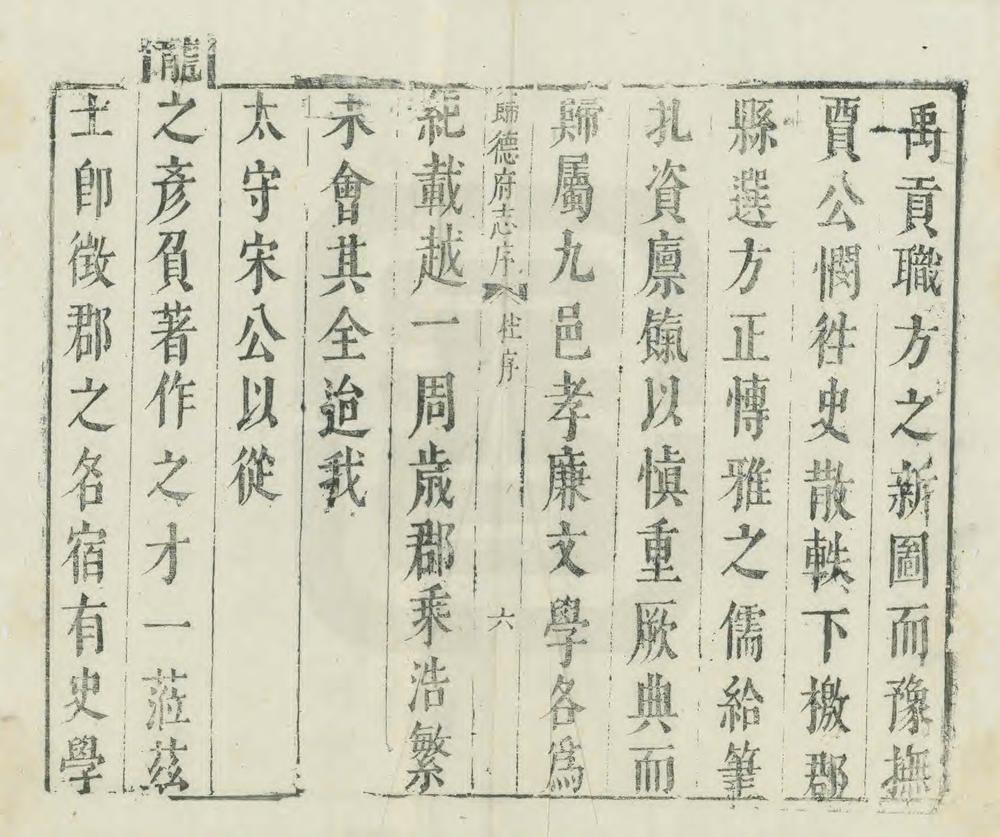 禹貢職方之新圖而豫撫
賈公憫徃史散軼下檄郡
縣選方正愽雅之儒給筆
札資廪餼以愼重厥典而
歸屬九邑孝廉文學各爲
歸德府志序 杜序 六
紀載越一周歳郡乘浩繁
未會其全迨我
太守宋公以從
龍之彥負著作之才一蒞茲
土卽徵郡之名宿有史學